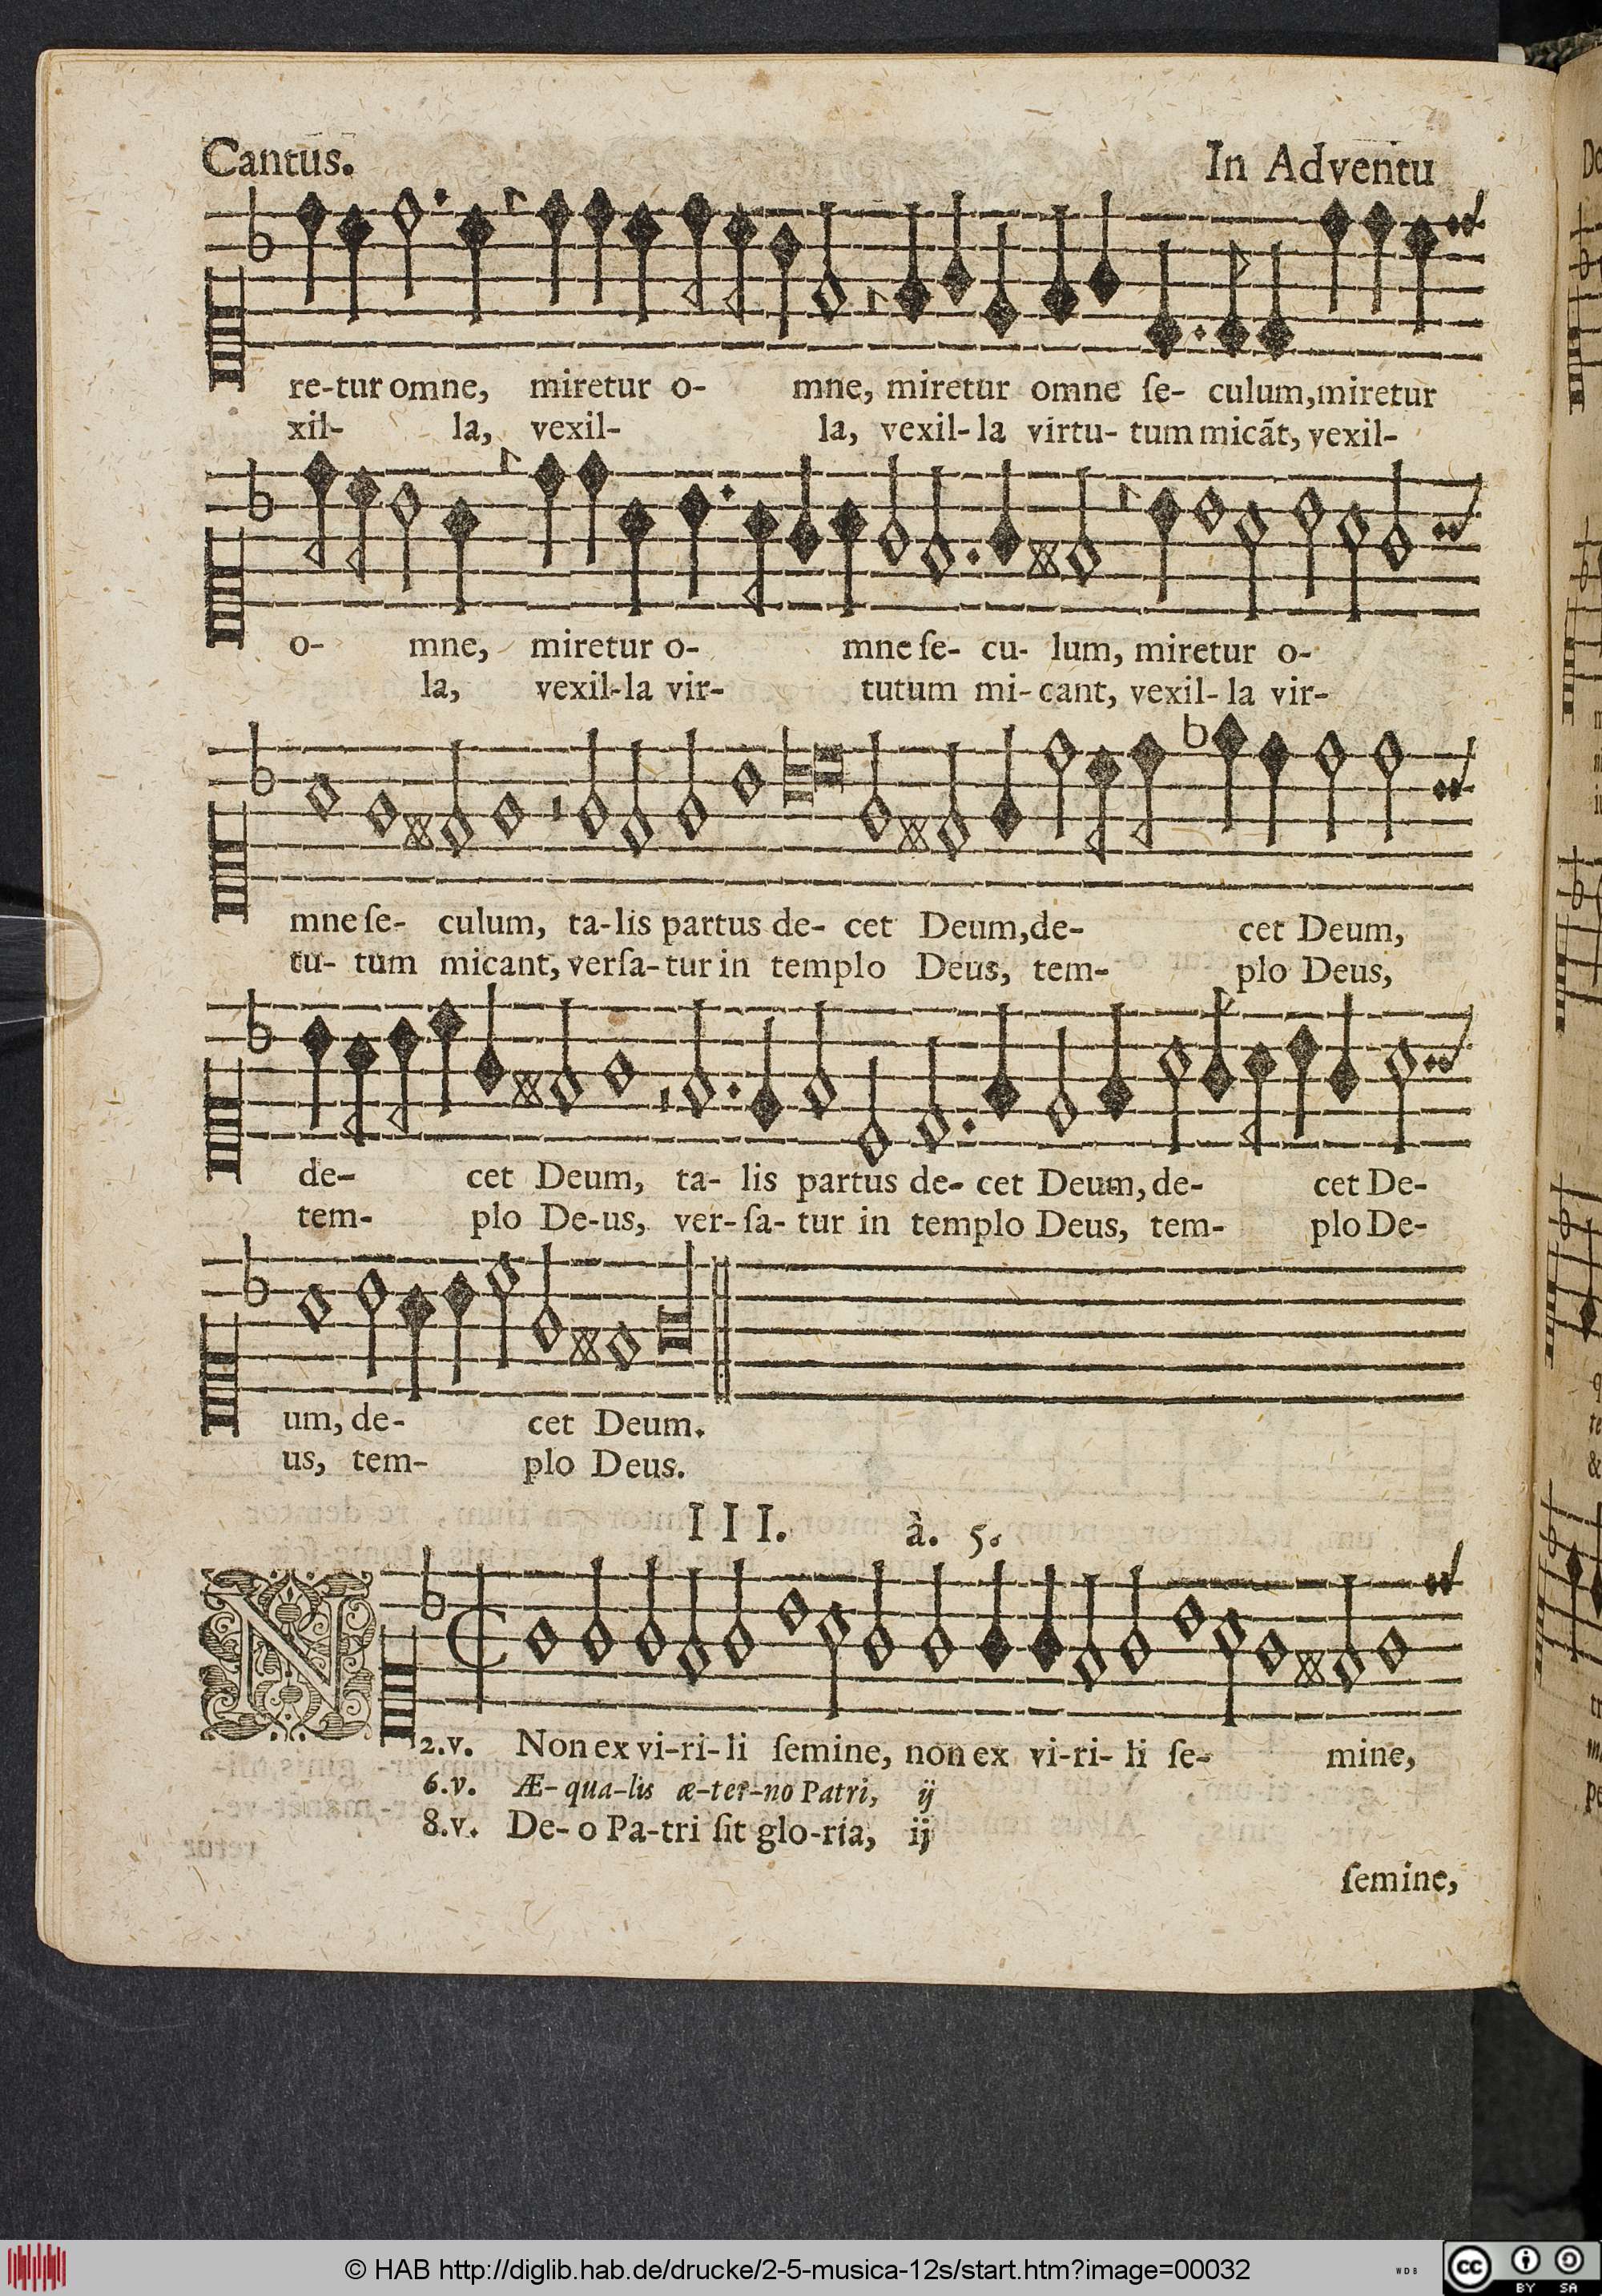 Cantus. In Adventu
re-tur omne, miretur o- mne, miretur omne ſe- culum, miretur
xil- la, vexil- la, vexil- la virtu- tum micãt, vexil-
o- mne, miretur o- mne ſe- cu- lum, miretur o-
la, vexil-la vir- tutum mi- cant, vexil- la vir-
mne ſe- culum, ta-lis partus de- cet Deum, de- cet Deum,
tu- tum micant, verſa-tur in templo Deus, tem- plo Deus,
de- cet Deum, ta- lis partus de- cet Deum, de- cet De-
tem- plo De-us, ver-ſa- tur in templo Deus, tem- plo De-
um, de- cet Deum.
us, tem- plo Deus.
III. à. 5.
N
2.v. Non ex vi-ri-li ſemine, non ex vi-ri- li ſe- mine,
6.v. Æ- qua-lis æ-ter-no Patri, ij
8.v. De- o Pa-tri ſit glo-ria, ij
ſemine,
© HAB http://diglib.hab.de/drucke/2-5-musica-12s/start.htm?image=00032
WDB
cc BY SA